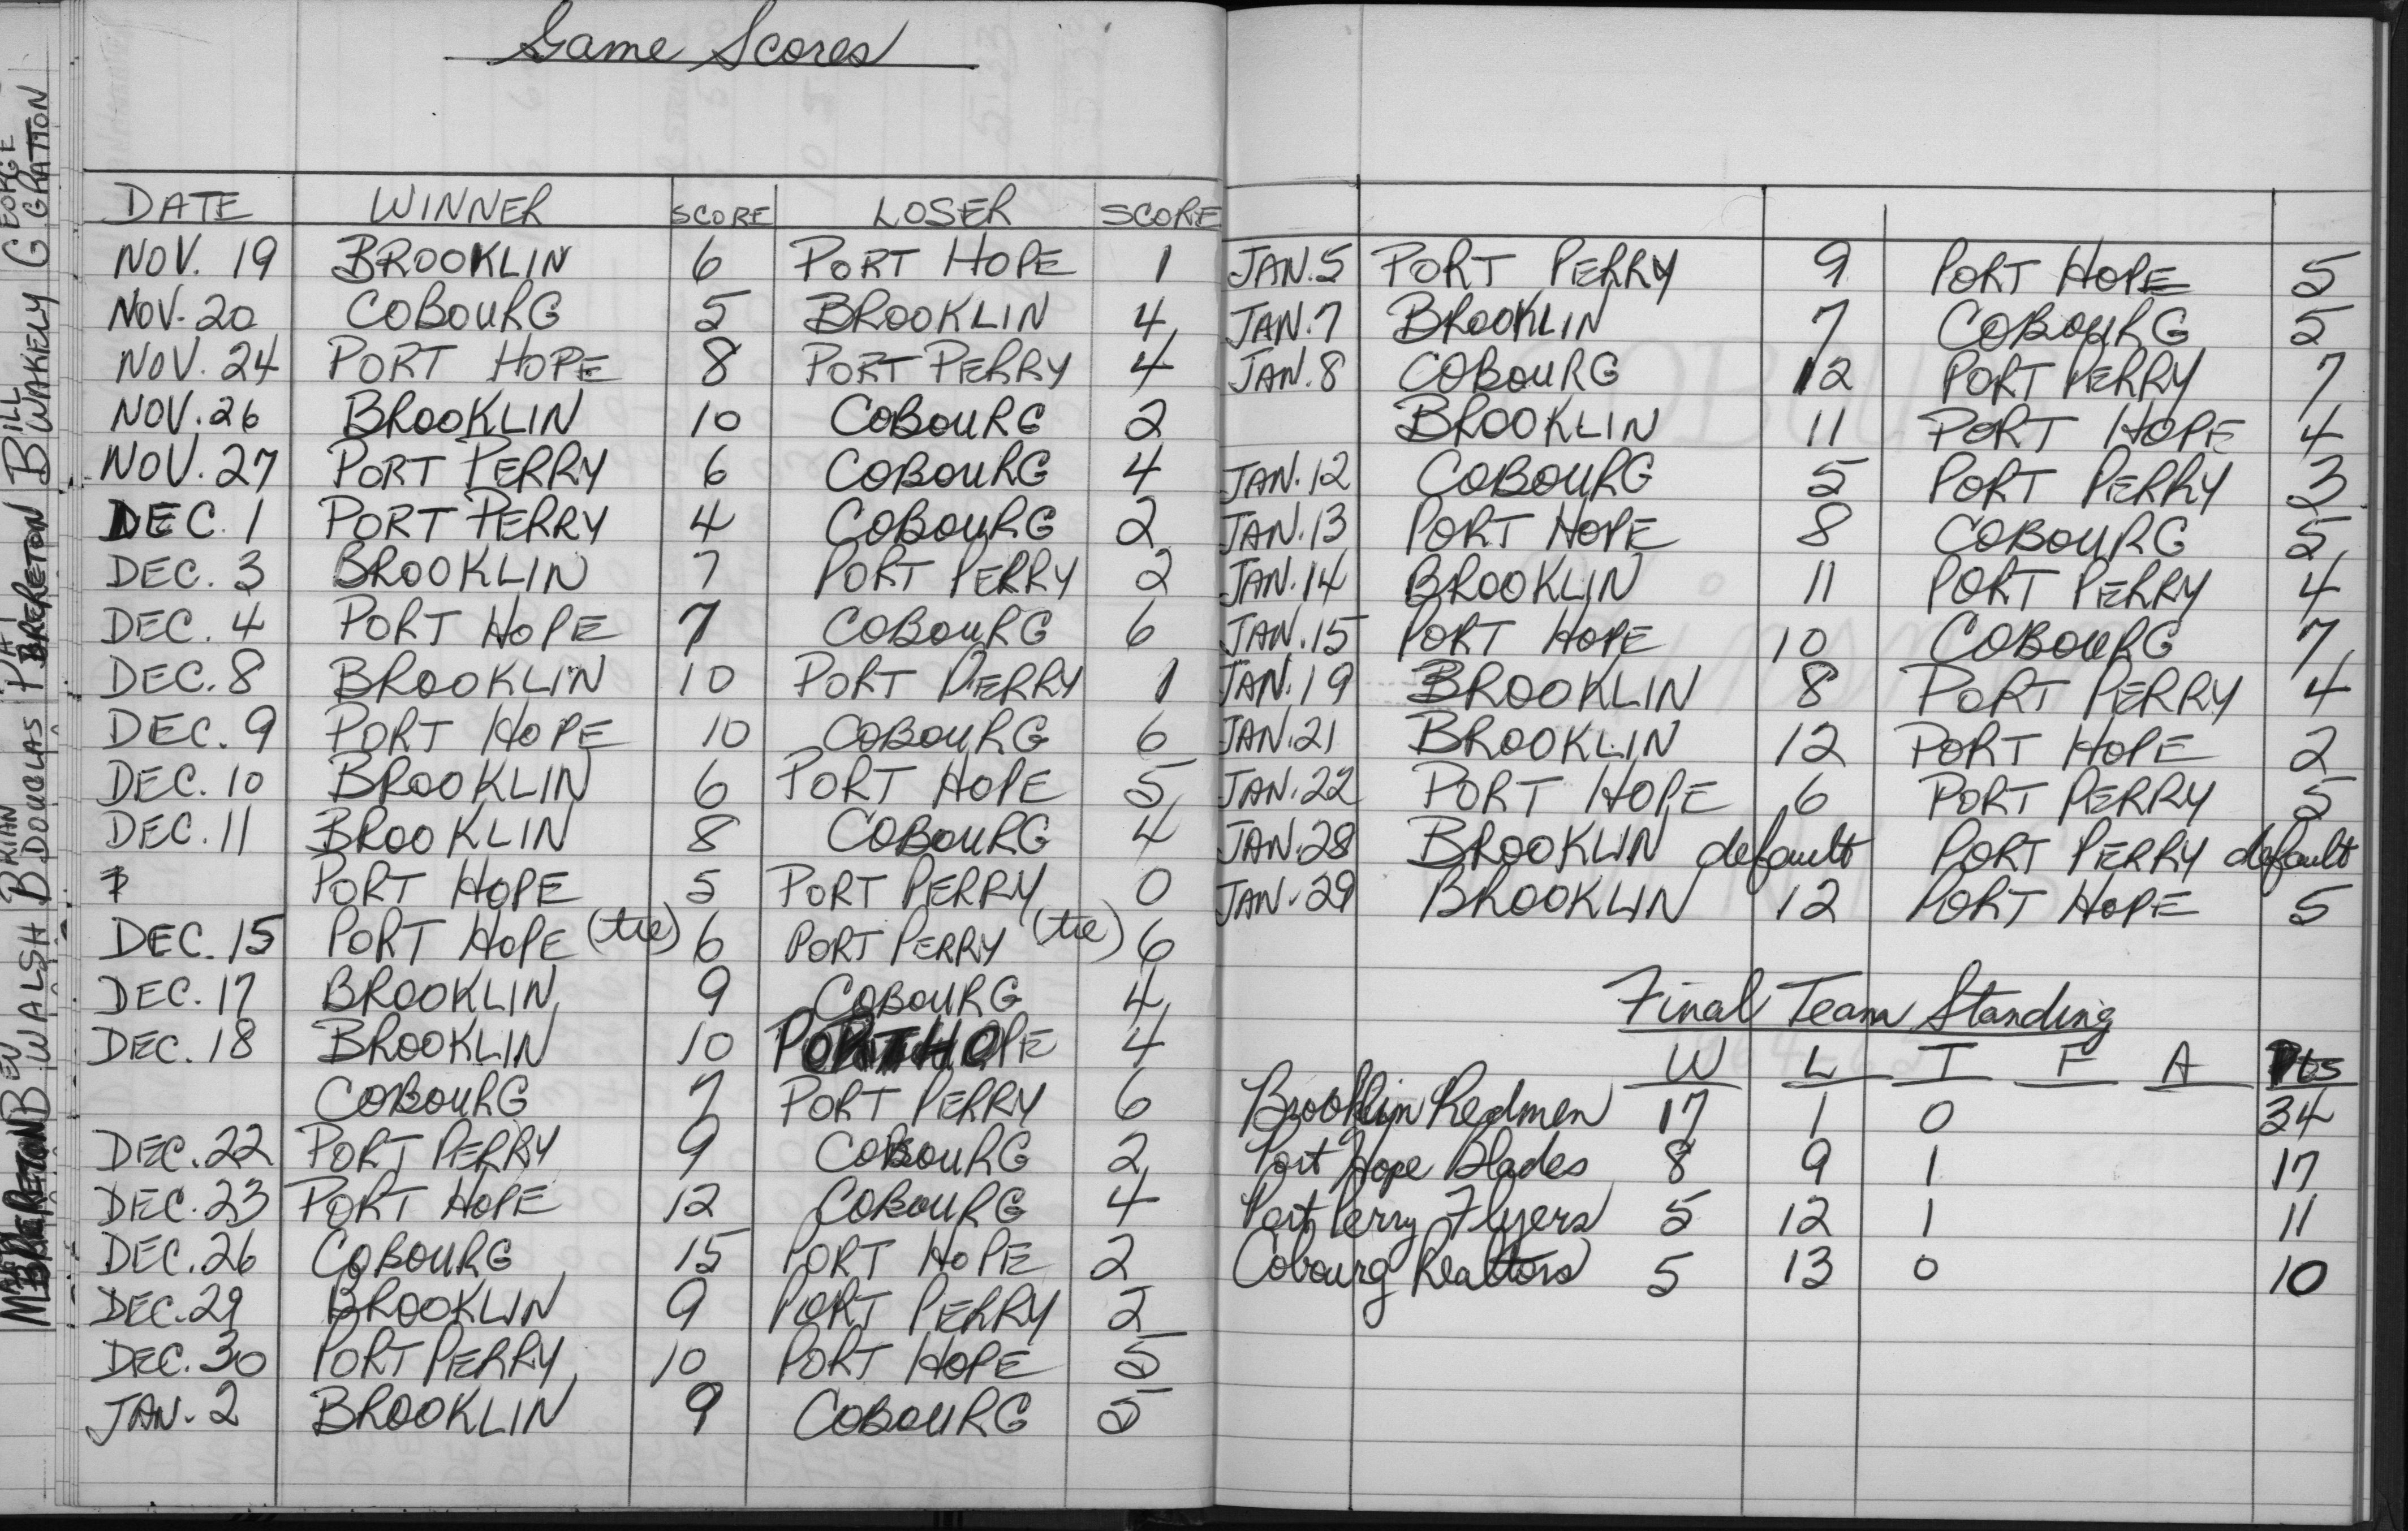 Game Scores
DATE WINNER SCORE LOSER SCORE
NOV. 19 BROOKLIN 6 PORT HOPE 1
NOV. 20 COBOURG 5 BROOKLIN 4
NOV. 24 PORT HOPE 8 PORT PERRY 4
NOV. 26 BROOKLIN 10 COBOURG 2
NOV. 27 PORT PERRY 6 COBOURG 4
DEC. 1 PORT PERRY 4 COBOURG 2
DEC. 3 BROOKLIN 7 PORT PERRY 2
DEC. 4 PORT HOPE 7 COBOURG 6
DEC. 8 BROOKLIN 10 PORT PERRY 1
DEC. 9 PORT HOPE 10 COBOURG 6
DEC. 10 BROOKLIN 6 PORT HOPE 5
DEC. 11 BROOKLIN 8 COBOURG 4
PORT HOPE 5 PORT PERRY 0
DEC. 15 PORT HOPE (tie) 6 PORT PERRY (tie) 6
DEC. 17 BROOKLIN 9 COBOURG 4
DEC. 18 BROOKLIN 10 PORT HOPE 4
COBOURG 7 PORT PERRY 6
DEC. 22 PORT PERRY 9 COBOURG 2
DEC. 23 PORT HOPE 12 COBOURG 4
DEC. 26 COBOURG 15 PORT HOPE 2
DEC. 29 BROOKLIN 9 PORT PERRY 2
DEC. 30 PORT PERRY 10 PORT HOPE 5
JAN. 2 BROOKLIN 9 COBOURG 5
JAN. 5 PORT PERRY 9 PORT HOPE 5
JAN. 7 BROOKLIN 7 COBOURG 5
JAN. 8 COBOURG 12 PORT PERRY 7
BROOKLIN 11 PORT HOPE 4
JAN. 12 COBOURG 5 PORT PERRY 3
JAN. 13 PORT HOPE 8 COBOURG 5
JAN. 14 BROOKLIN 11 PORT PERRY 4
JAN. 15 PORT HOPE 10 COBOURG 7
JAN. 19 BROOKLIN 8 PORT PERRY 4
JAN. 21 BROOKLIN 12 PORT HOPE 2
JAN. 22 PORT HOPE 6 PORT PERRY 5
JAN. 28 BROOKLIN default PORT PERRY default
JAN. 29 BROOKLIN 12 PORT HOPE 5
Final Team Standing
W L T F A Pts
Brooklin Redmen 17 1 0 34
Port Hope Blades 8 9 1 17
Port Perry Flyers 5 12 1 11
Cobourg Realtors 5 13 0 10
GEORGE
G GRATTON
BILL
B WAKELY
PAT
P BRERETON
BRIAN
B DOUGLAS
BEV
B WALSH
M BRERETON